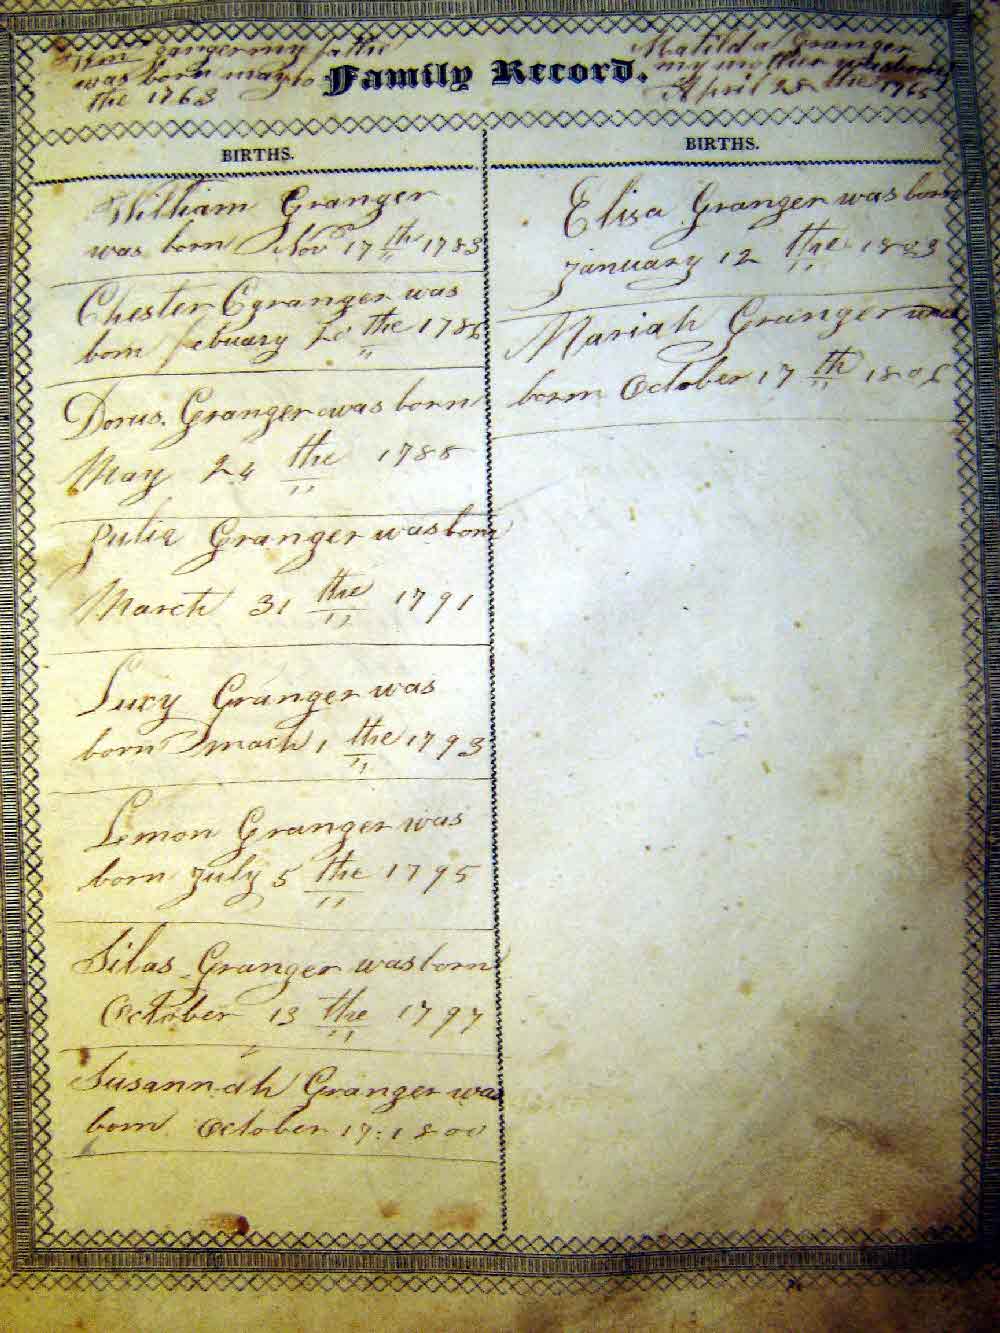 Wm gangermy father
was born may 10
the 1763
Family Record.
Matilda Granger
my mother was born
April 28 the 1765
BIRTHS.
William Granger
was born Nov 17 the 1783
Chester C granger was
born febuary 20 the 1786
Dorus. Granger was born
May 24 the 1788
Julia Granger was born
March 31 the 1791
Lucy Granger was
born march 1 the 1793
Lemon Granger was
born July 5 the 1795
Silas Granger was born
October 13 the 1797
Susannah Granger was
born October 17:1800
BIRTHS.
Elisa Granger was born
january 12 the 1803
Mariah Granger was
born October 17 th 1806